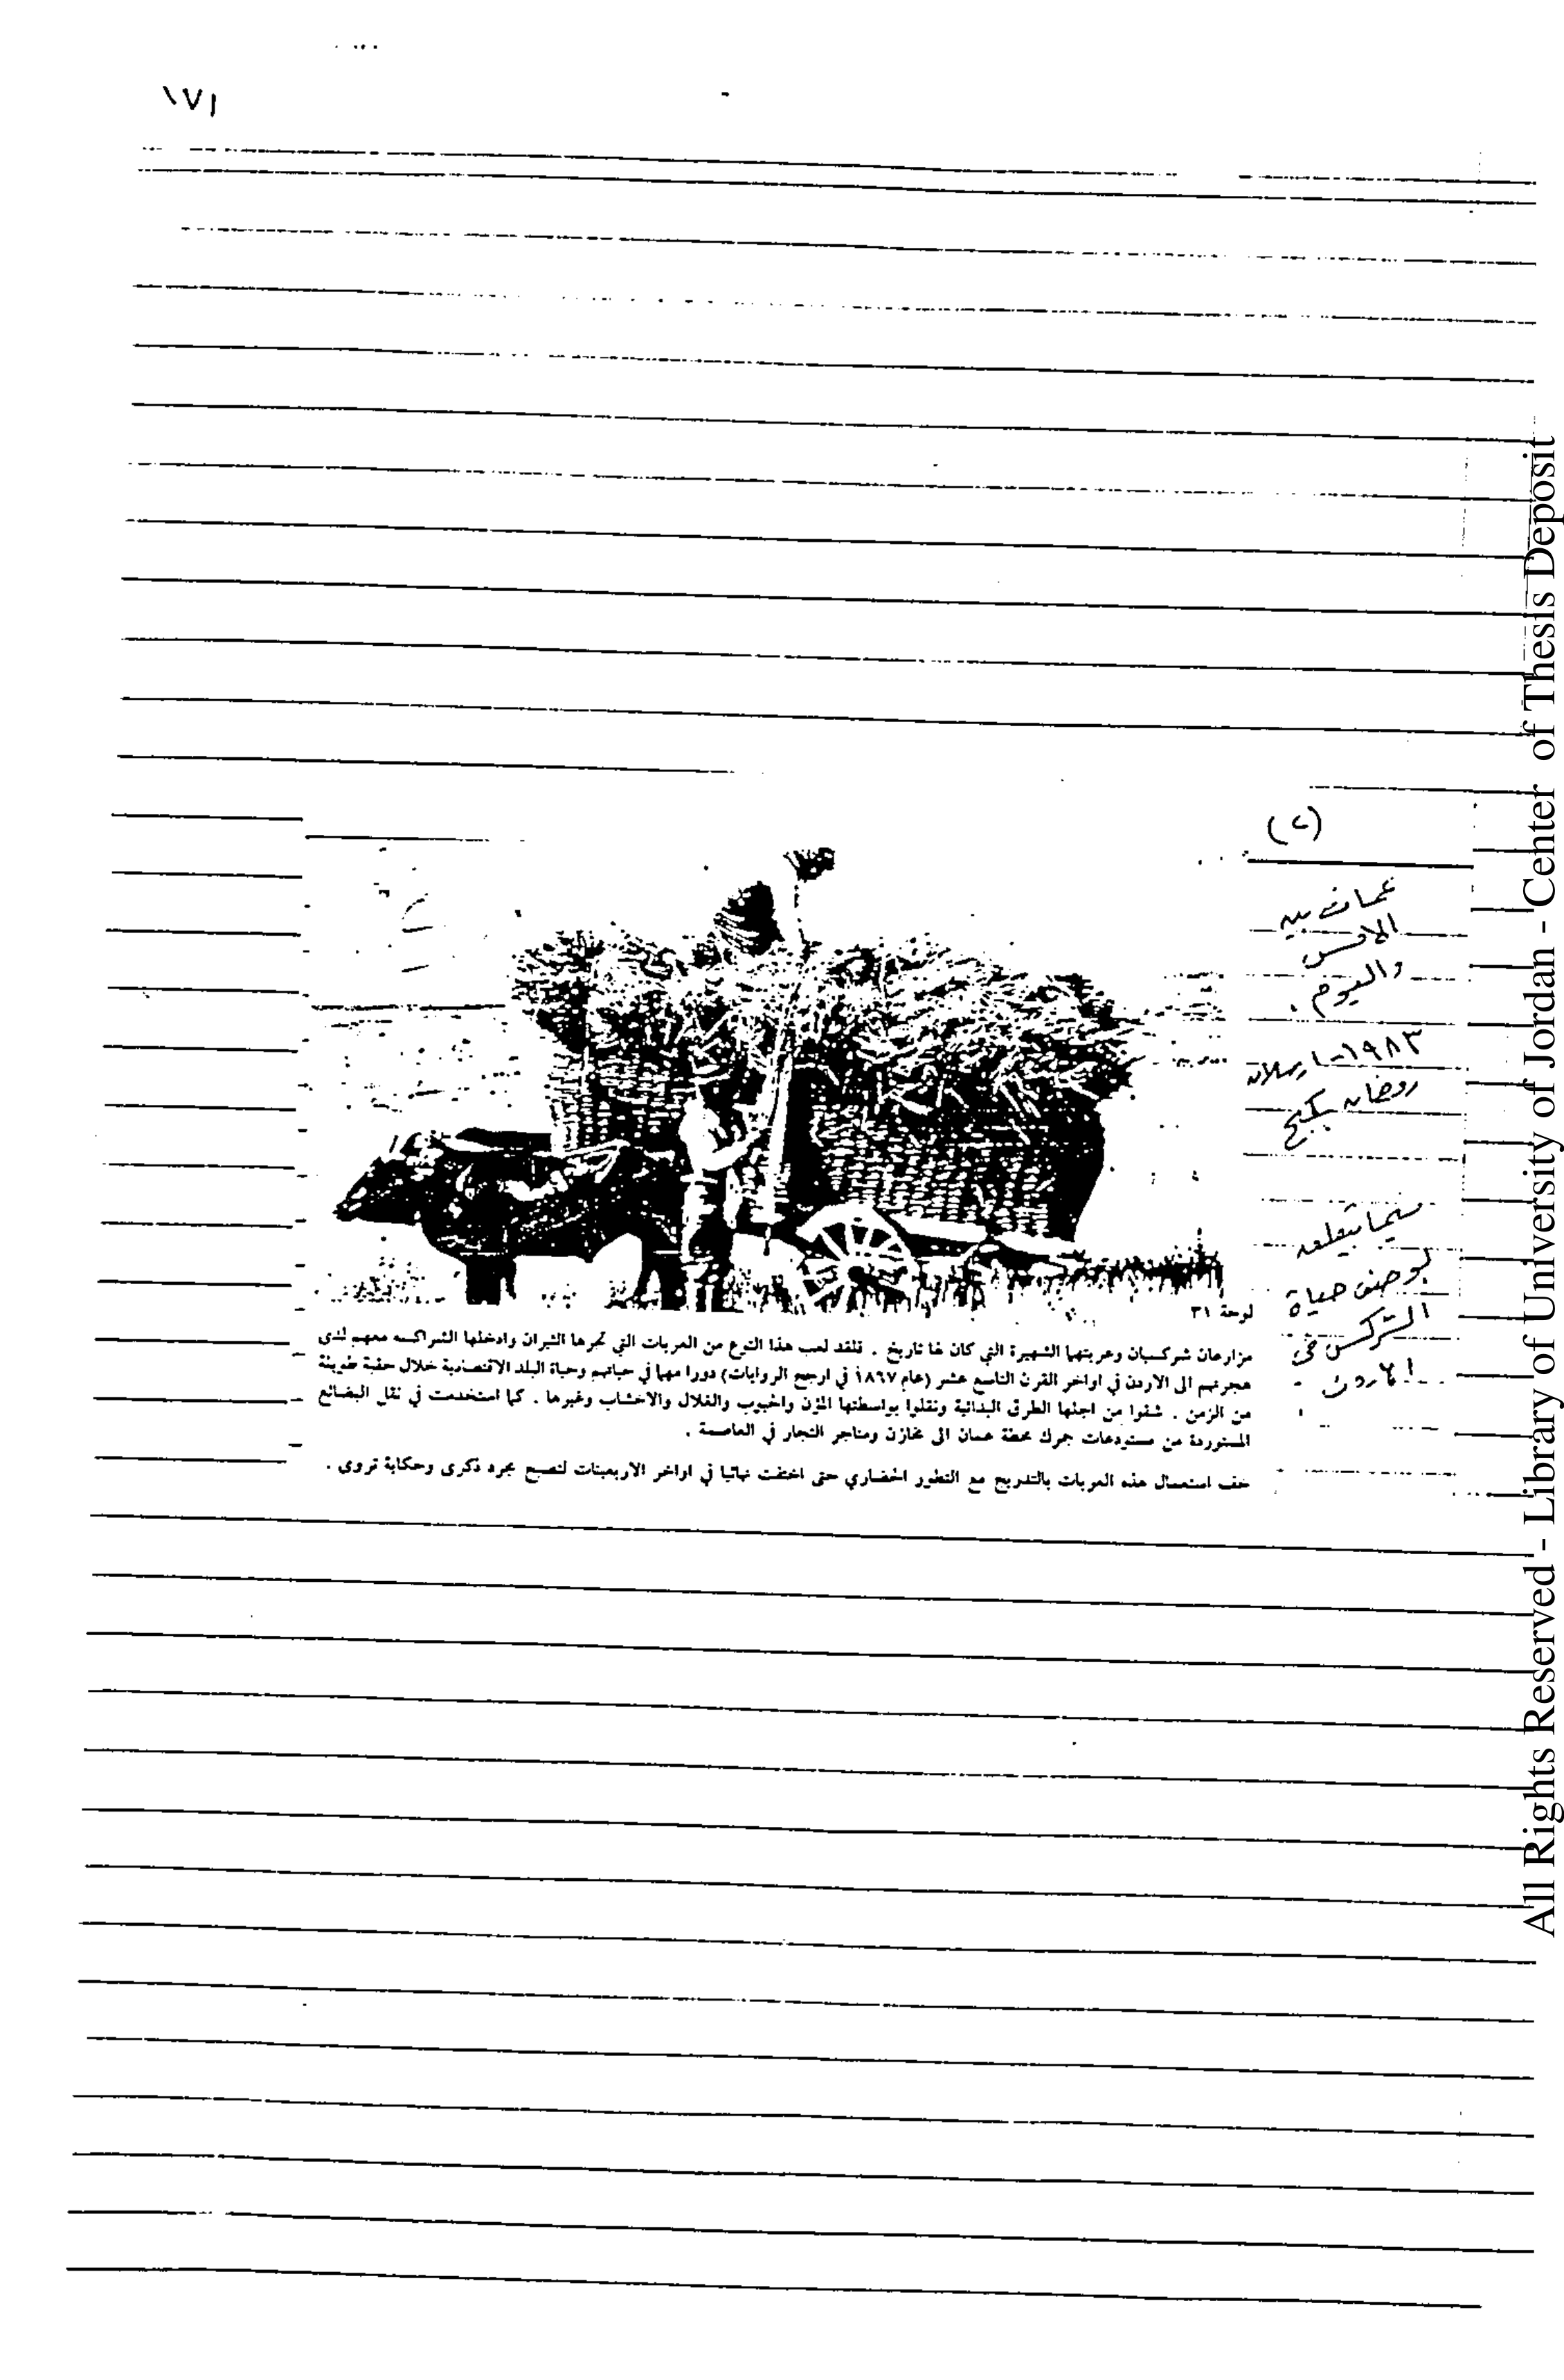 ١٧١
(٢)
عمان بين
الامس
واليوم .
١٩٨٣ - ارسلان
رمضان بكج
فيما يتعلق
بوصف حياة
الشركس في
الاردن .
لوحة ٣١
مزارعان شركسيان وعربتهما الشهيرة التي كان لها تاريخ . فلقد لعب هذا النوع من العربات التي تجرها الثيران وادخلها الشراكسه معهم لدى
هجرتهم الى الاردن في اواخر القرن التاسع عشر (عام ١٨٩٧ في ارجح الروايات) دورا مهما في حياتهم وحياة البلد الاقتصادية خلال حقبة طويلة
من الزمن . شقوا من اجلها الطرق البدائية ونقلوا بواسطتها المؤن والحبوب والغلال والاخشاب وغيرها . كما استخدمت في نقل البضائع
المستوردة من مستودعات جمرك محطة عمان الى مخازن ومتاجر التجار في العاصمة .
خف استعمال هذه العربات بالتدريج مع التطور الحضاري حتى اختفت نهائيا في اواخر الاربعينات لتصبح مجرد ذكرى وحكاية تروى .
All Rights Reserved - Library of University of Jordan - Center of Thesis Deposit